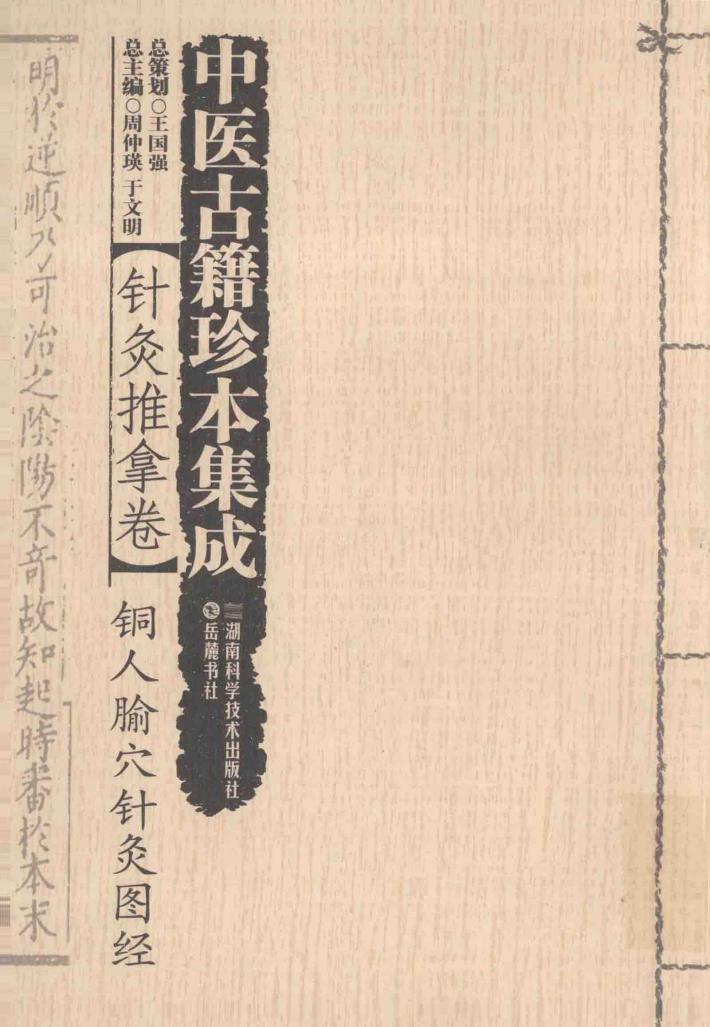 中医古籍珍本集成
湖南科学技术出版社
岳麓书社
总策划○王国强
总主编○周仲瑛 于文明
【针灸推拿卷】
铜人腧穴针灸图经
明於逆順乃可治之陰陽不奇故知起時審於本末